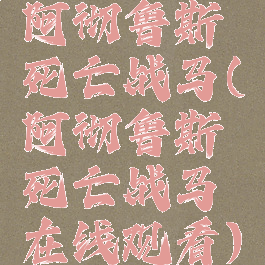 阿彻鲁斯
死亡战马(
阿彻鲁斯
死亡战马
在线观看)